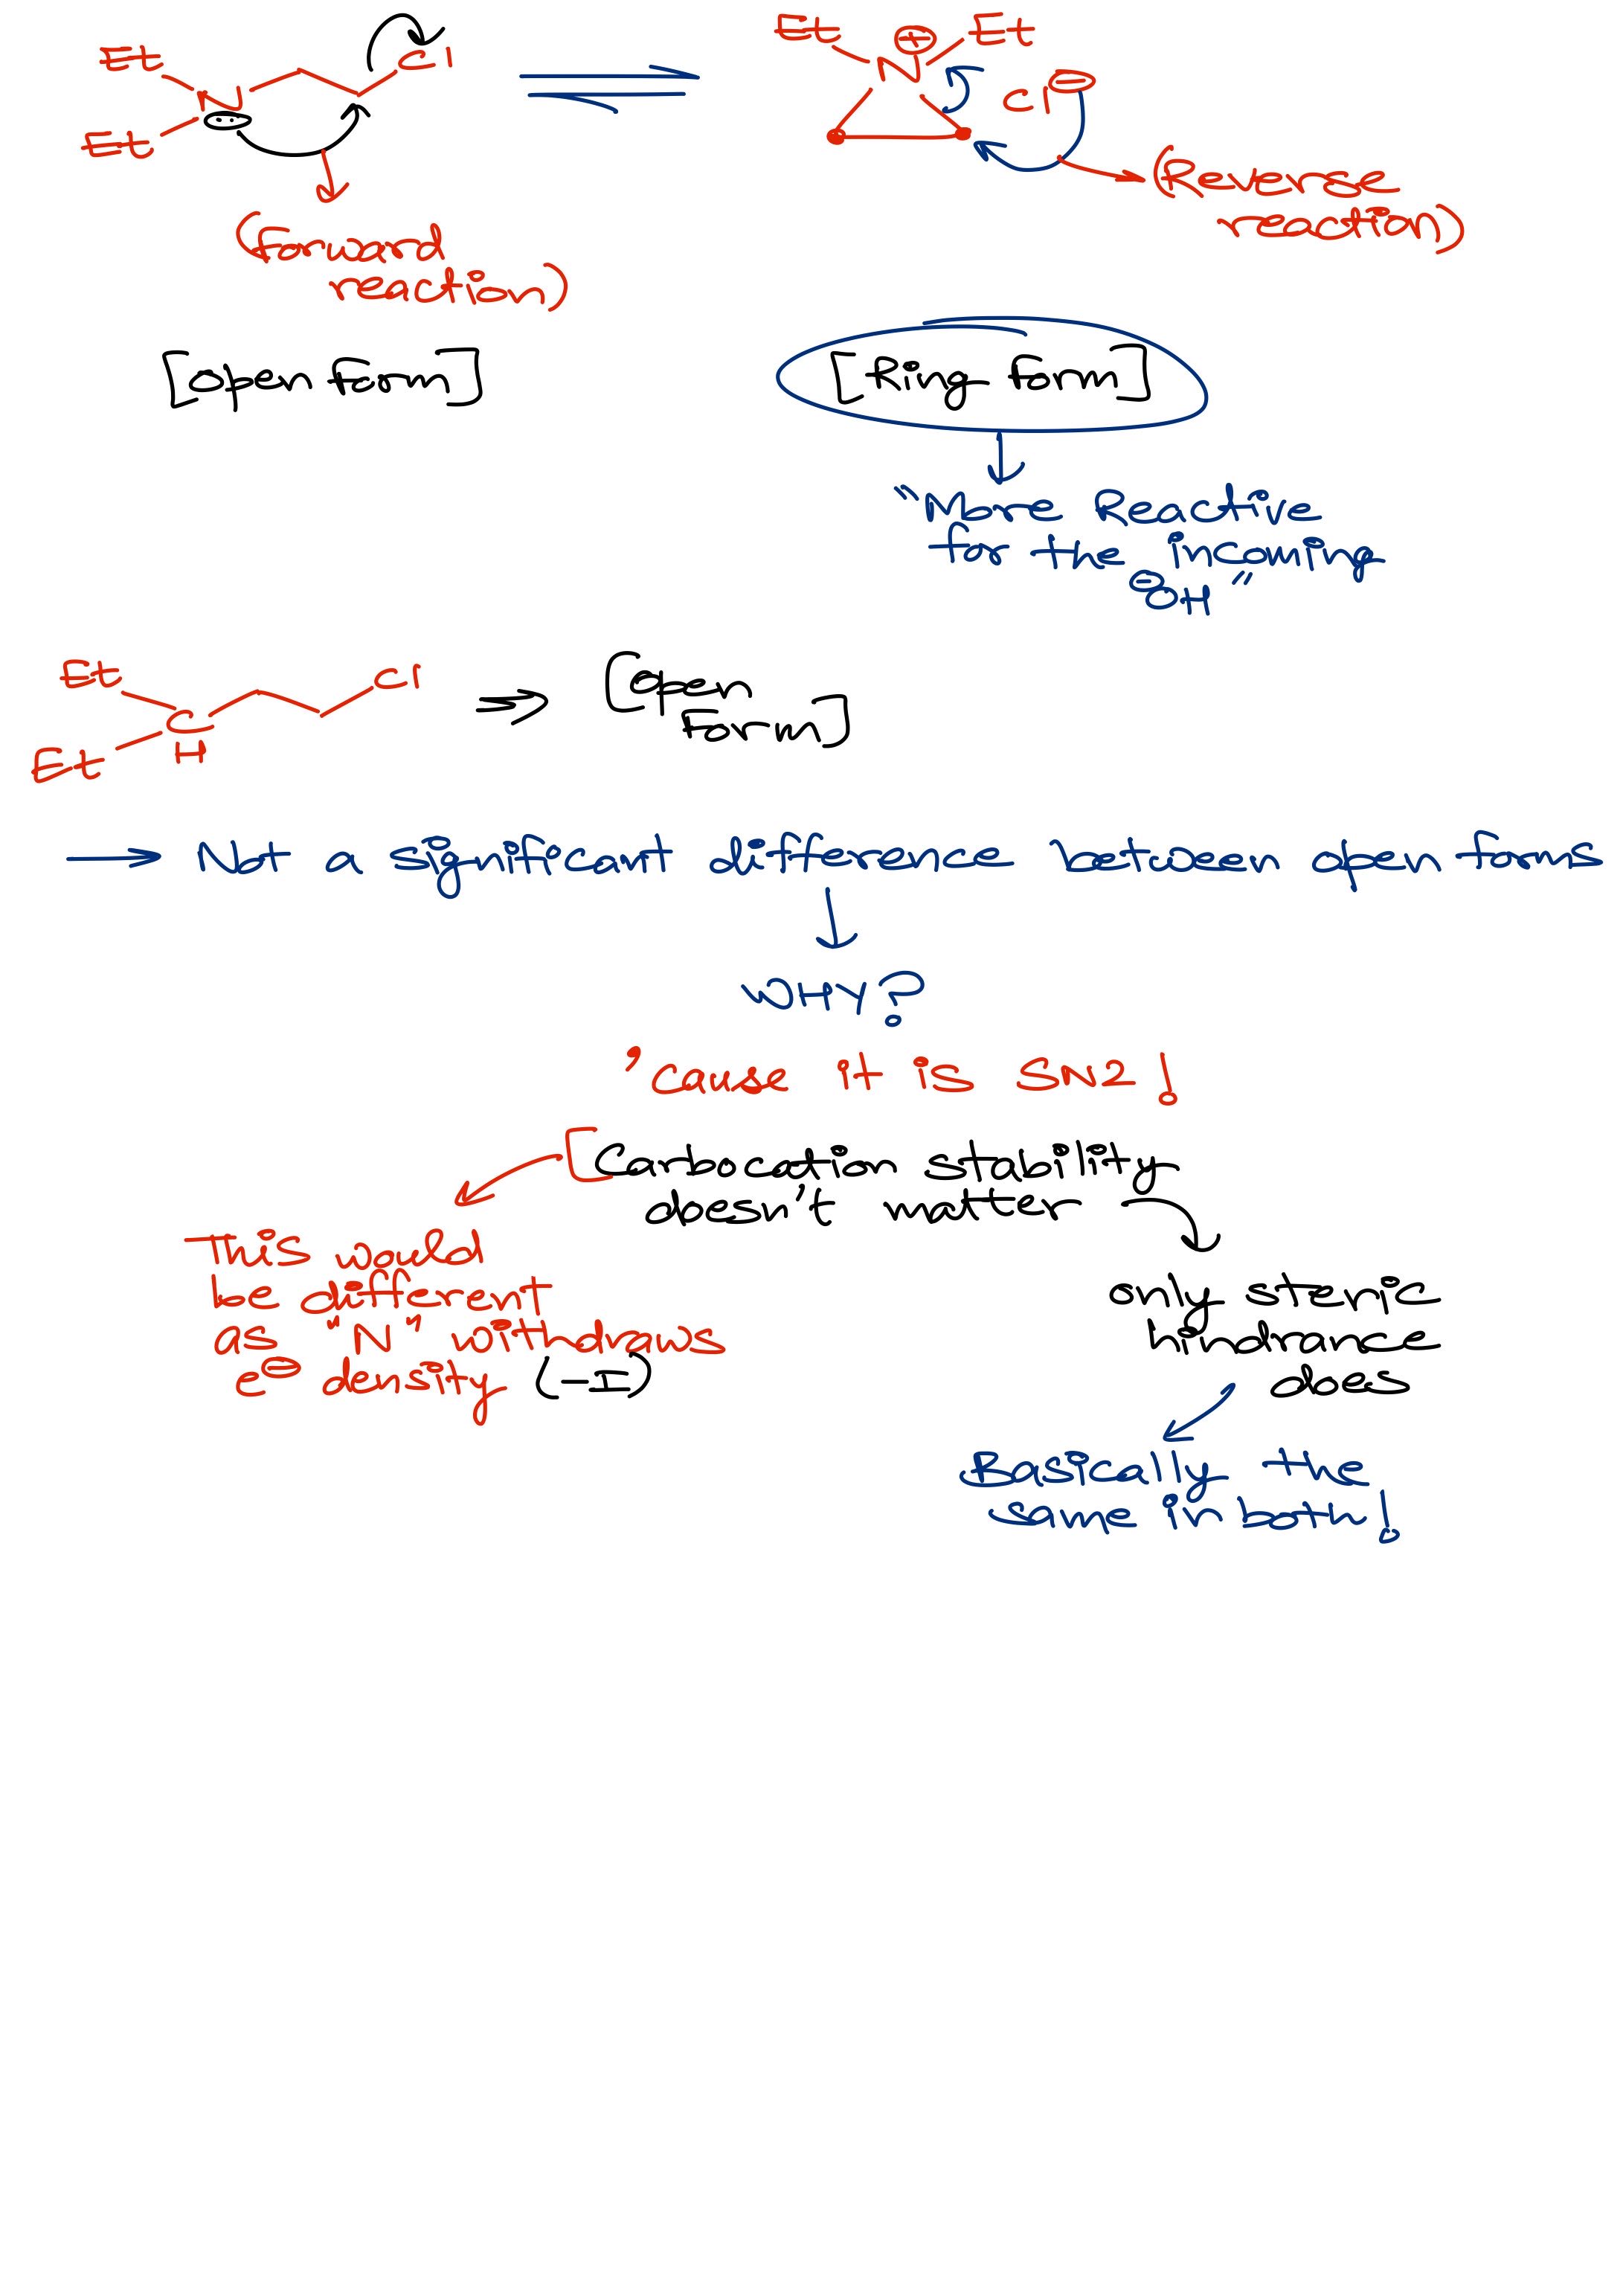 Et
N
Et
Cl
Et
⊕
Et
N
Cl⊖
(Forward
reaction)
(Reverse
reaction)
[open form]
[Ring form]
"More Reactive
for the incoming
⊖
OH"
Et
Cl
C
H
Et
⇒ [Open
Form]
→ Not a significant difference between open forms
WHY?
'cause it is SN2!
[Carbocation stability
doesn't matter
This would
be different
as "N" withdraws
e⊖ density (-I)
only steric
hindrance
does
Basically the
same in both!